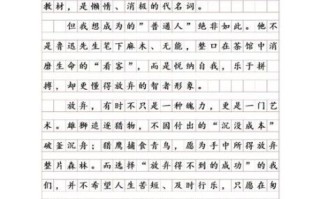 教材，是懒惰、消极的代名词。
但我想成为的“普通人”绝非如此。他不
是鲁迅先生笔下麻木、无能，整日在茶馆中消
磨生命的“看客”，而是悦纳自我，乐于拼
搏，却更懂得放弃的智者形象。
放弃，有时不只是一种魄力，更是一门艺
术。雄狮追逐猎物，不因付出的“沉没成本”
破釜沉舟；猎鹰捕食青鸟，愿为手中所得放弃
整片森林。而选择“放弃得不到的成功”的我
们，并不希望人生苦短、及时行乐，只愿在匆